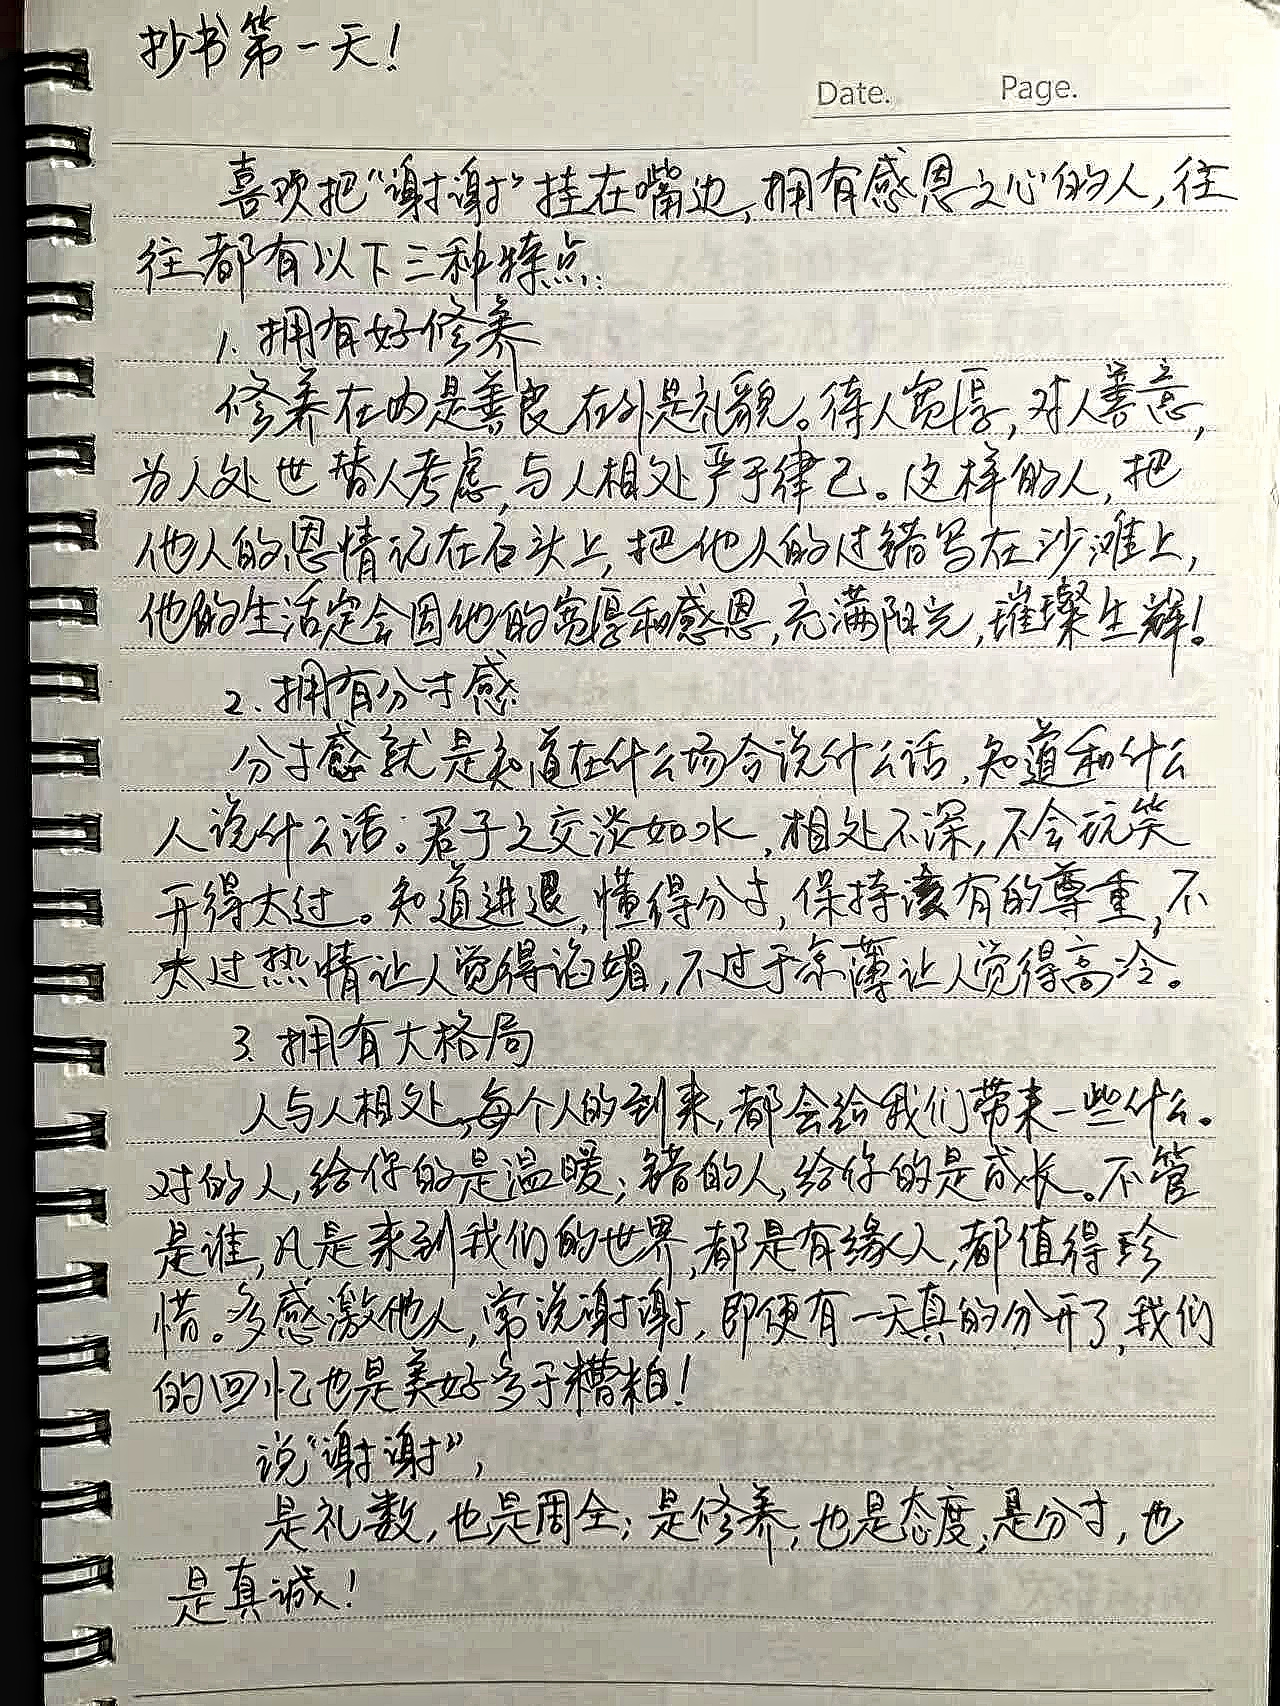 抄书第一天!
Date. Page.
喜欢把“谢谢”挂在嘴边,拥有感恩之心的人,往
往都有以下三种特点:
1. 拥有好修养
修养在内是善良,在外是礼貌。待人宽厚,对人善意,
为人处世替人考虑,与人相处严于律己。这样的人,把
他人的恩情记在石头上,把他人的过错写在沙滩上,
他的生活定会因他的宽厚和感恩,充满阳光,璀璨生辉!
2. 拥有分寸感
分寸感就是知道在什么场合说什么话,知道和什么
人说什么话。君子之交淡如水,相处不深,不会玩笑
开得太过。知道进退,懂得分寸,保持该有的尊重,不
太过热情让人觉得谄媚,不过于凉薄让人觉得高冷。
3. 拥有大格局
人与人相处,每个人的到来,都会给我们带来一些什么。
对的人,给你的是温暖;错的人,给你的是成长。不管
是谁,凡是来到我们的世界,都是有缘人,都值得珍
惜。多感激他人,常说谢谢,即便有一天真的分开了,我们
的回忆也是美好多于糟粕!
说“谢谢”,
是礼数,也是周全;是修养,也是态度;是分寸,也
是真诚!